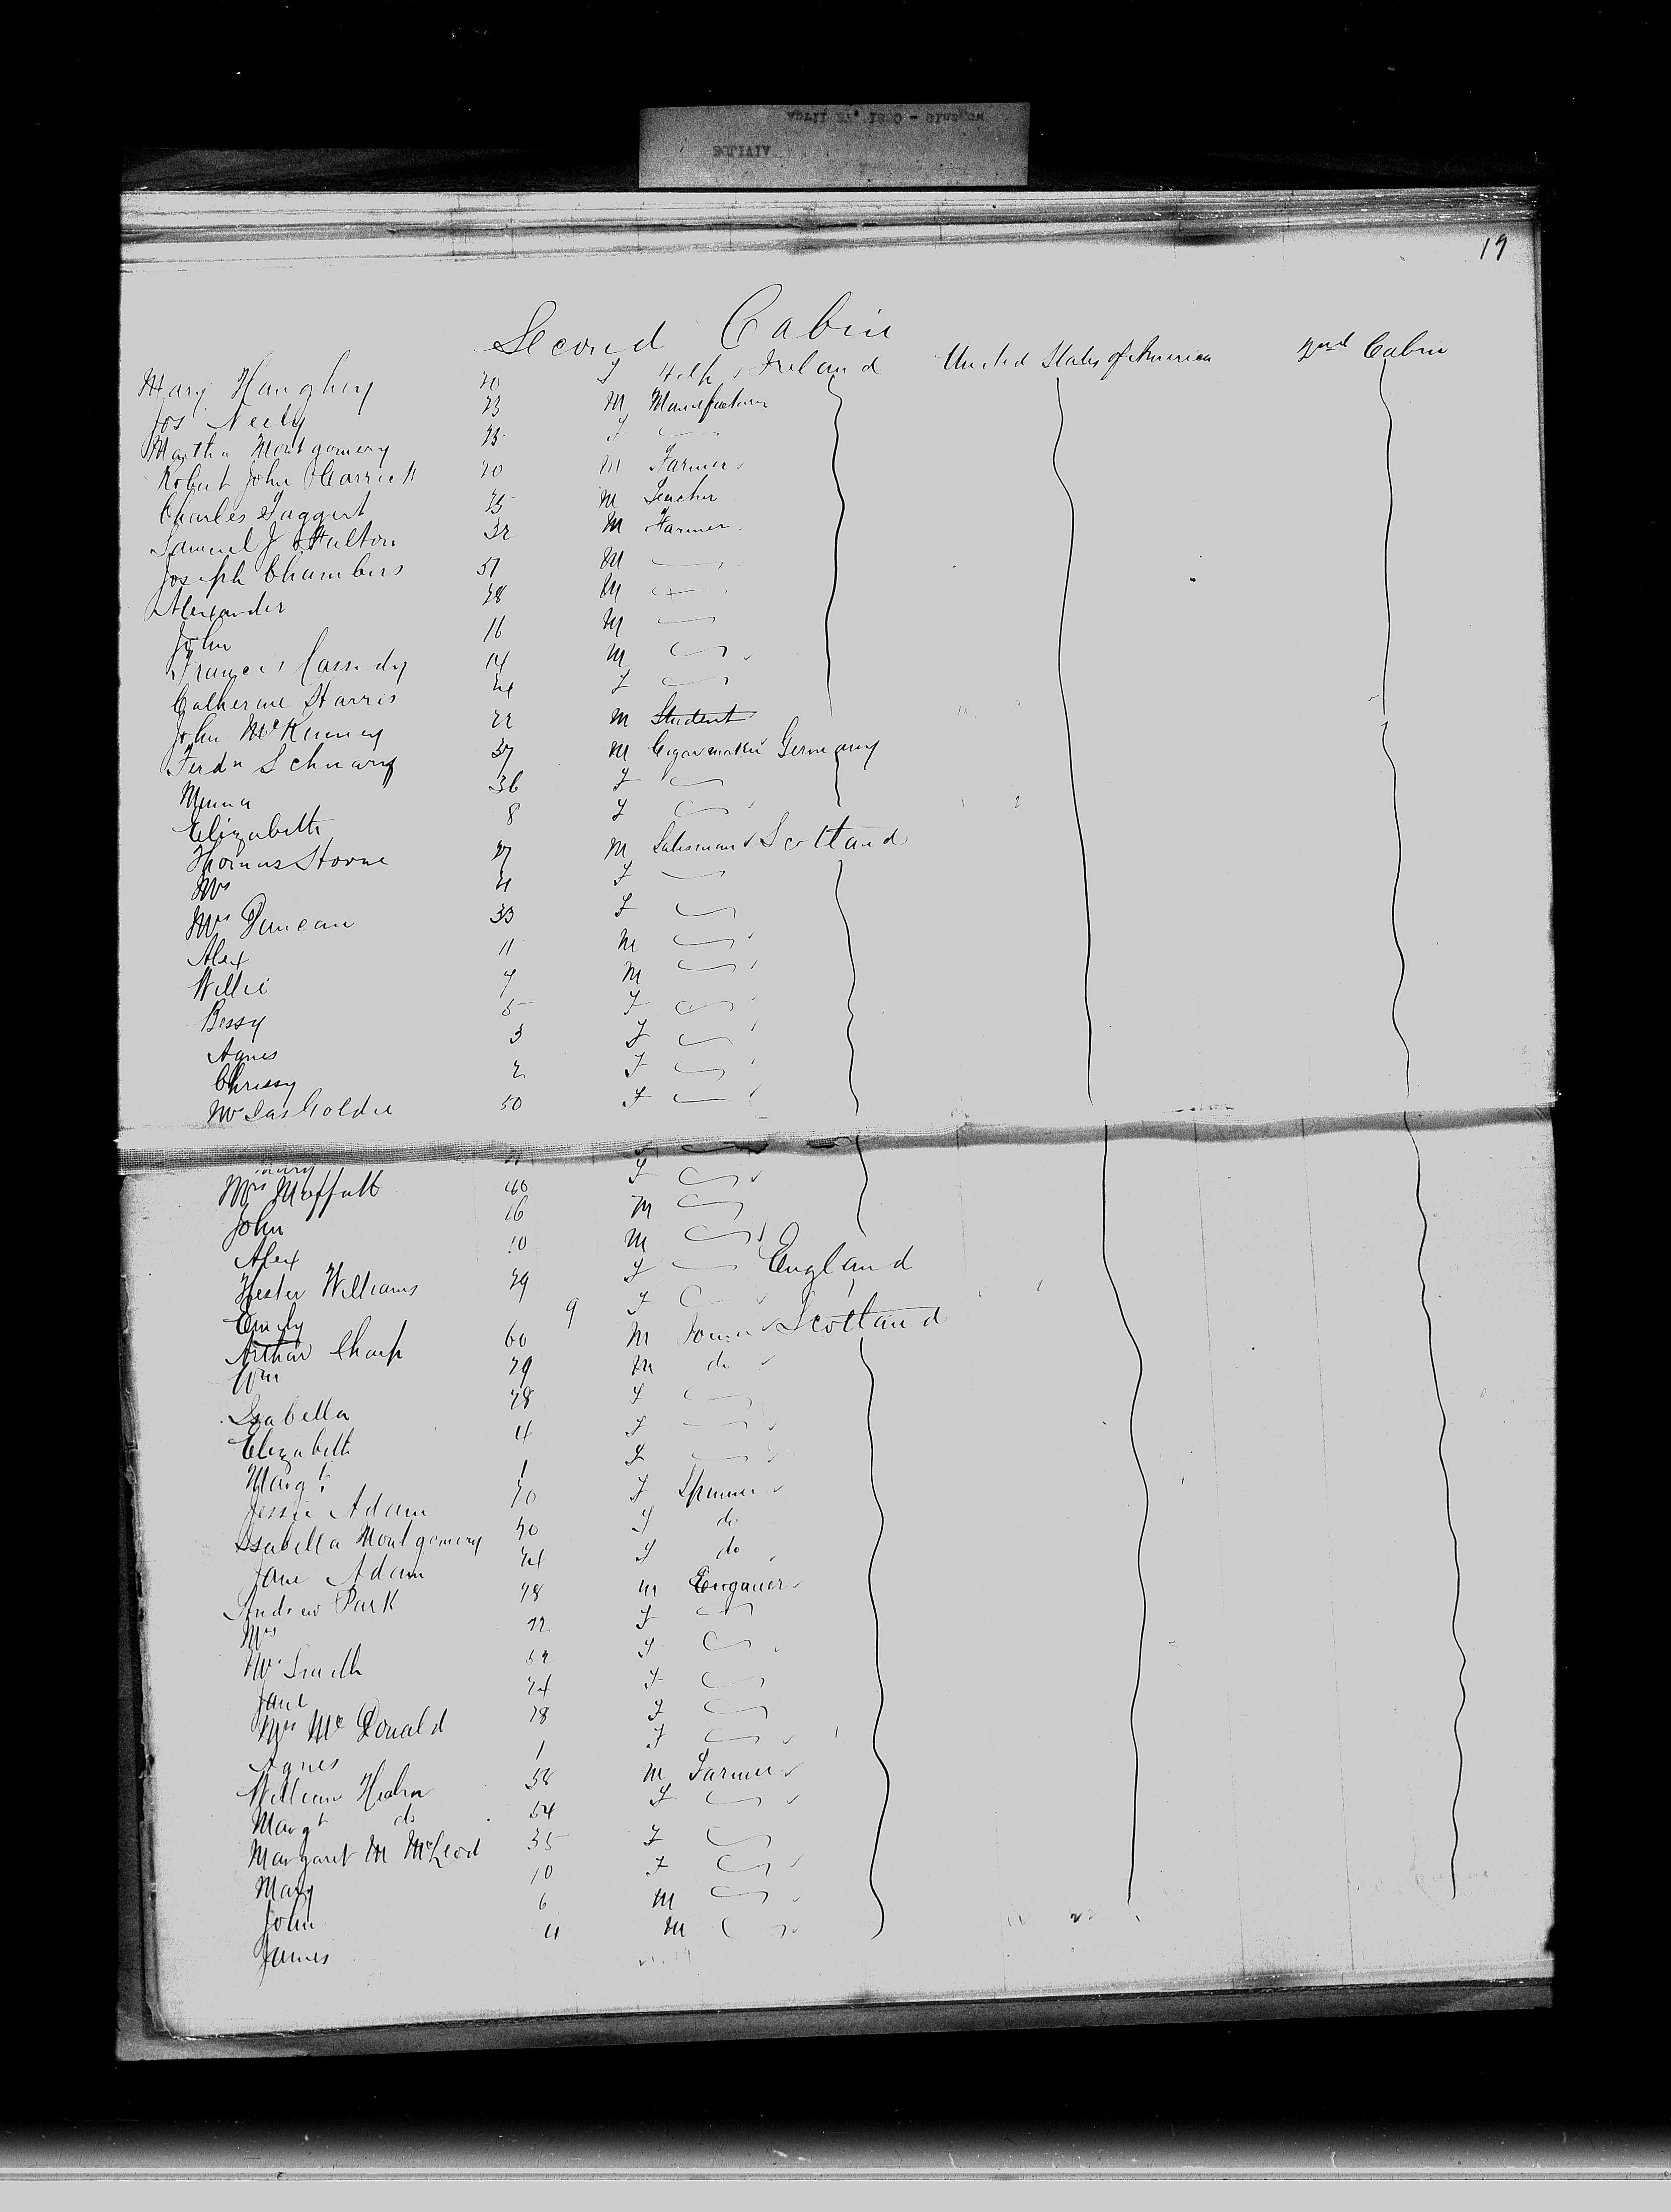 19
Second Cabin
Mary Haughey 20 F Help Ireland United States of America 2nd Cabin
Jos Neely 23 M Manufacturer
Martha Montgomery 25 F
Robert John Carrick 20 M Farmer
Charles Taggert 25 M Teacher
Samuel J Fulton 32 M Farmer
Joseph Chambers 57 M
Alexander 28 M
John 16 M
Francis Cassidy 14 M
Catherine Harris 24 F
John McKinney 22 M Student
Ferdn Schwarz 37 M Cigarmaker Germany
Minna 36 F
Elizabeth 8 F
Thomas Storne 27 M Salesman Scotland
Mrs 21 F
Mrs Duncan 33 F
Alex 11 M
Willie 7 M
Bessy 5 F
Agnes 3 F
Chrissy 2 F
Mrs Jas Goldie 50 F
Mary F
Mrs Moffatt 40 F
John 16 M
Alex 10 M
Hester Williams 29 F England
Emily 9 F
Arthur Sharp 60 M Joiner Scotland
Wm 29 M do
Isabella 28 F
Elizabeth 4 F
Margt 1 F
Jessie Adam 20 F Spinner
Isabella Montgomery 20 F do
Jane Adam 24 F do
Andrew Park 28 M Engineer
Mrs 22 F
Mrs Smith 52 F
Jane 24 F
Mrs McDonald 28 F
Agnes 1 F
William 58 M Farmer
Margt do 54 F
Margaret M McLeod 35 F
Mary 10 F
John 6 M
James 4 M